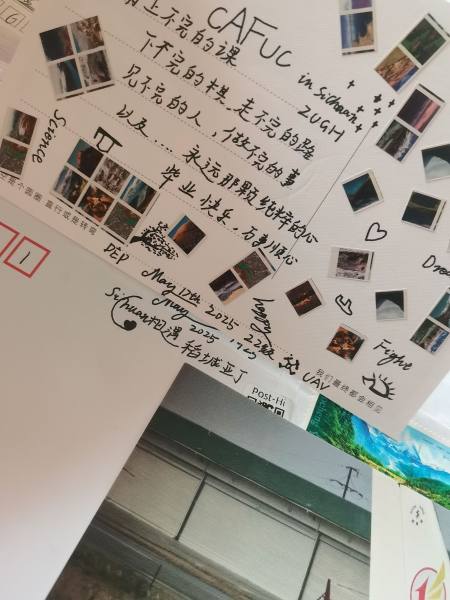 CAFUC
in Sichuan
ZUGH
有上不完的课
下不完的棋.走不完的路
见不完的人，做不完的事
以及...永远那颗纯粹的心
毕业快乐..万事顺心
Science
DEP May 17th 2025
May 2025
Sichuan相遇稻城亚丁
UAV
Fight
我们最终都会相见
直行或是转弯
Post-Hi
1